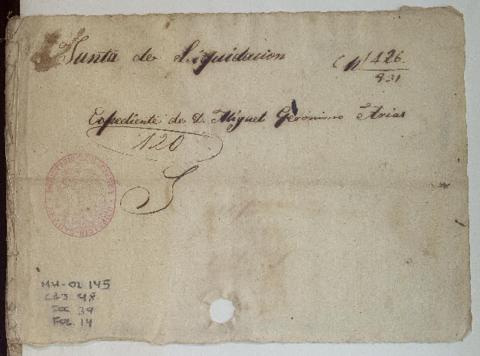 Junta de Liquidacion
1426
831
Expediente de D. Miguel Gerónimo Arias
120
MH-OL 145
CAJ. 48
DOC 39
FOL. 14